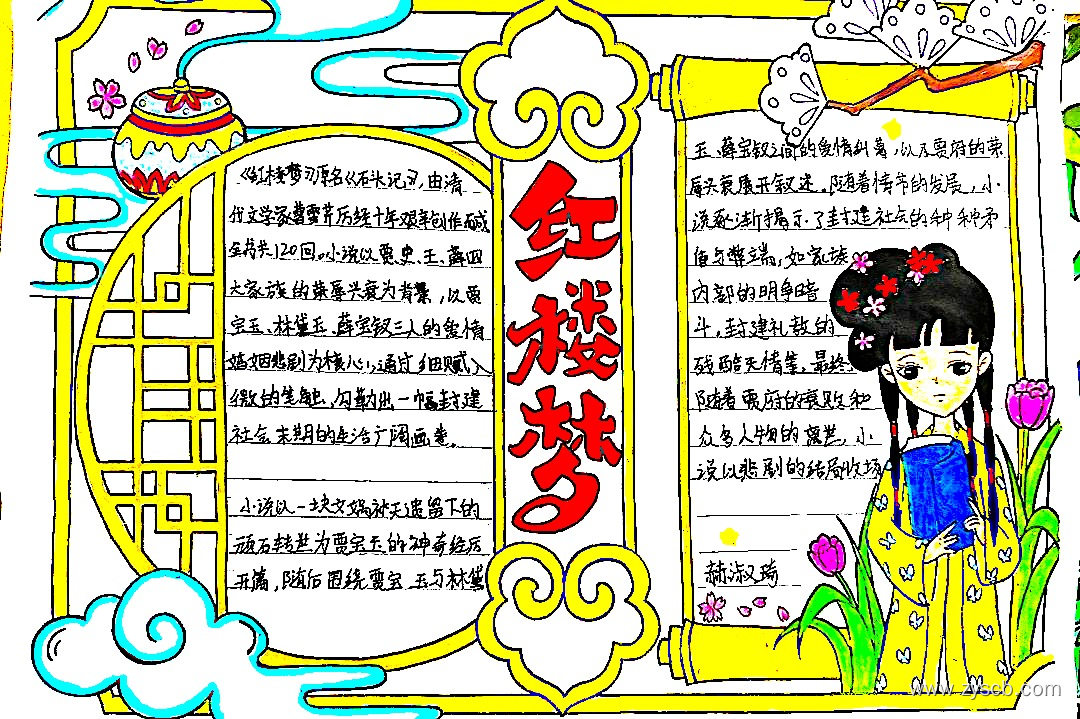 《红楼梦》原名《石头记》,由清
代文学家曹雪芹历经十年艰辛创作而成
全书共120回。小说以贾、史、王、薛四
大家族的荣辱兴衰为背景,以贾
宝玉、林黛玉、薛宝钗三人的爱情
婚姻悲剧为核心,通过细腻入
微的笔触,勾勒出一幅封建
社会末期的生活广阔画卷。
小说以一块女娲补天遗留下的
顽石转世为贾宝玉的神奇经历
开篇,随后围绕贾宝玉与林黛
红楼梦
玉、薛宝钗之间的爱情纠葛,以及贾府的荣
辱兴衰展开叙述。随着情节的发展,小
说逐渐揭示了封建社会的种种矛
盾与弊端,如家族
内部的明争暗
斗,封建礼教的
残酷无情等,最终
随着贾府的衰败和
众多人物的离世,小
说以悲剧的结局收场
赫淑琦
www.zyscb.com